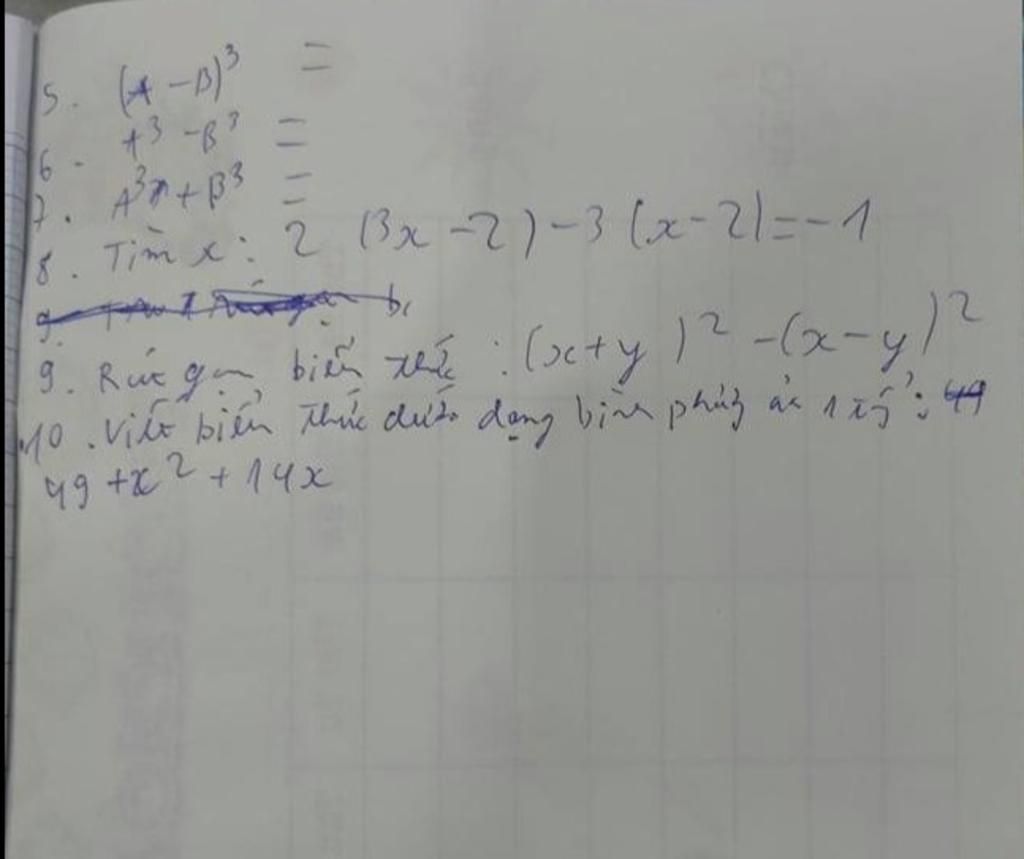 5. (A - B)³ =
6. A³ - B³ =
7. A³ + B³ =
8. Tìm x: 2 (3x - 2) - 3 (x - 2) = -1
9. Rút gọn biểu thức : (x + y )² - (x - y )²
10. Viết biểu thức dưới dạng bình phương của 1 tổng :
49 + x² + 14x